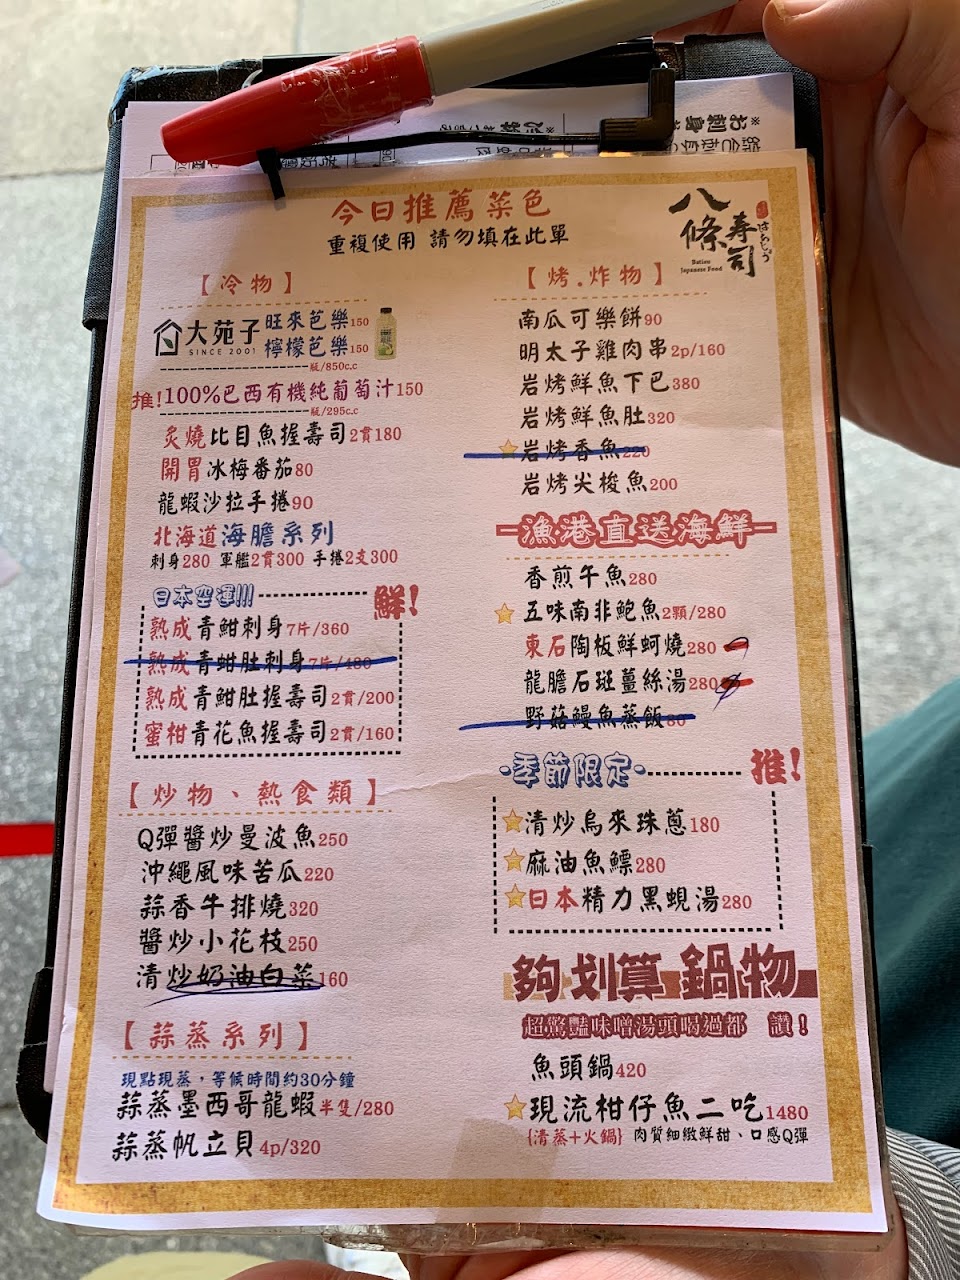 今日推薦菜色
重複使用 請勿填在此單
八條壽司
はちじょう
Batiou
Japanese Food
【冷物】
大苑子
SINCE 2001
旺來芭樂150
檸檬芭樂150
瓶/850c.c
推!100%巴西有機純葡萄汁150
瓶/295c.c
炙燒比目魚握壽司2貫180
開胃冰梅番茄80
龍蝦沙拉手捲90
北海道海膽系列
刺身280 軍艦2貫300 手捲2支300
日本空運!!! 鮮!
熟成青魽刺身7片/360
熟成青魽肚刺身7片/480
熟成青魽肚握壽司2貫/200
蜜柑青花魚握壽司2貫/160
【炒物、熱食類】
Q彈醬炒曼波魚250
沖繩風味苦瓜220
蒜香牛排燒320
醬炒小花枝250
清炒奶油白菜160
【蒜蒸系列】
現點現蒸，等候時間約30分鐘
蒜蒸墨西哥龍蝦半隻/280
蒜蒸帆立貝4p/320
【烤.炸物】
南瓜可樂餅90
明太子雞肉串2p/160
岩烤鮮魚下巴380
岩烤鮮魚肚320
岩烤香魚220
岩烤尖梭魚200
漁港直送海鮮
香煎午魚280
五味南非鮑魚2顆/280
東石陶板鮮蚵燒280
龍膽石斑薑絲湯280
野菇鰻魚蒸飯80
·季節限定· 推!
清炒烏來珠蔥180
麻油魚鰾280
日本精力黑蜆湯280
夠划算 鍋物
超驚豔味噌湯頭喝過都 讚!
魚頭鍋420
現流柑仔魚二吃1480
{清蒸+火鍋} 肉質細緻鮮甜、口感Q彈